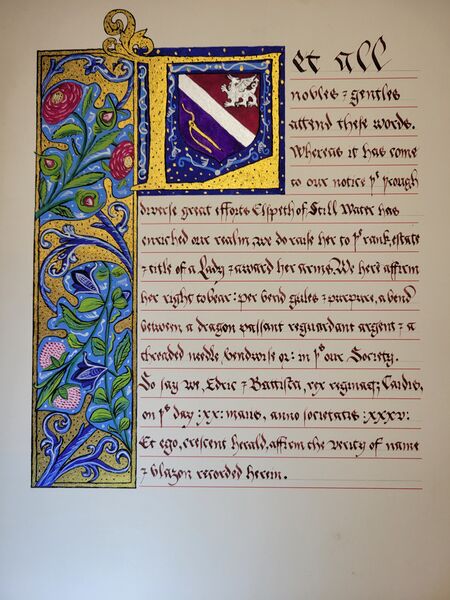 Let all
nobles ⁊ gentles
attend these words.
Whereas it has come
to our notice þᵗ þrough
diverse great efforts Elspeth of Still Water has
enriched our realm we do raise her to þᵉ rank, estate
⁊ title of a Lady ⁊ award her arms. We here affirm
her right to bear: per bend gules ⁊ purpure, a bend
between a dragon passant reguardant argent ⁊ a
threaded needle, bendwise or: in þⁱˢ our Society.
So say we, Edric ⁊ Battista, rex reginaq; Caidis,
on þⁱˢ day :xx: maiis, anno societatis :xxxv:
Et ego, crescent herald, affirm the verity of name
⁊ blazon recorded herein.